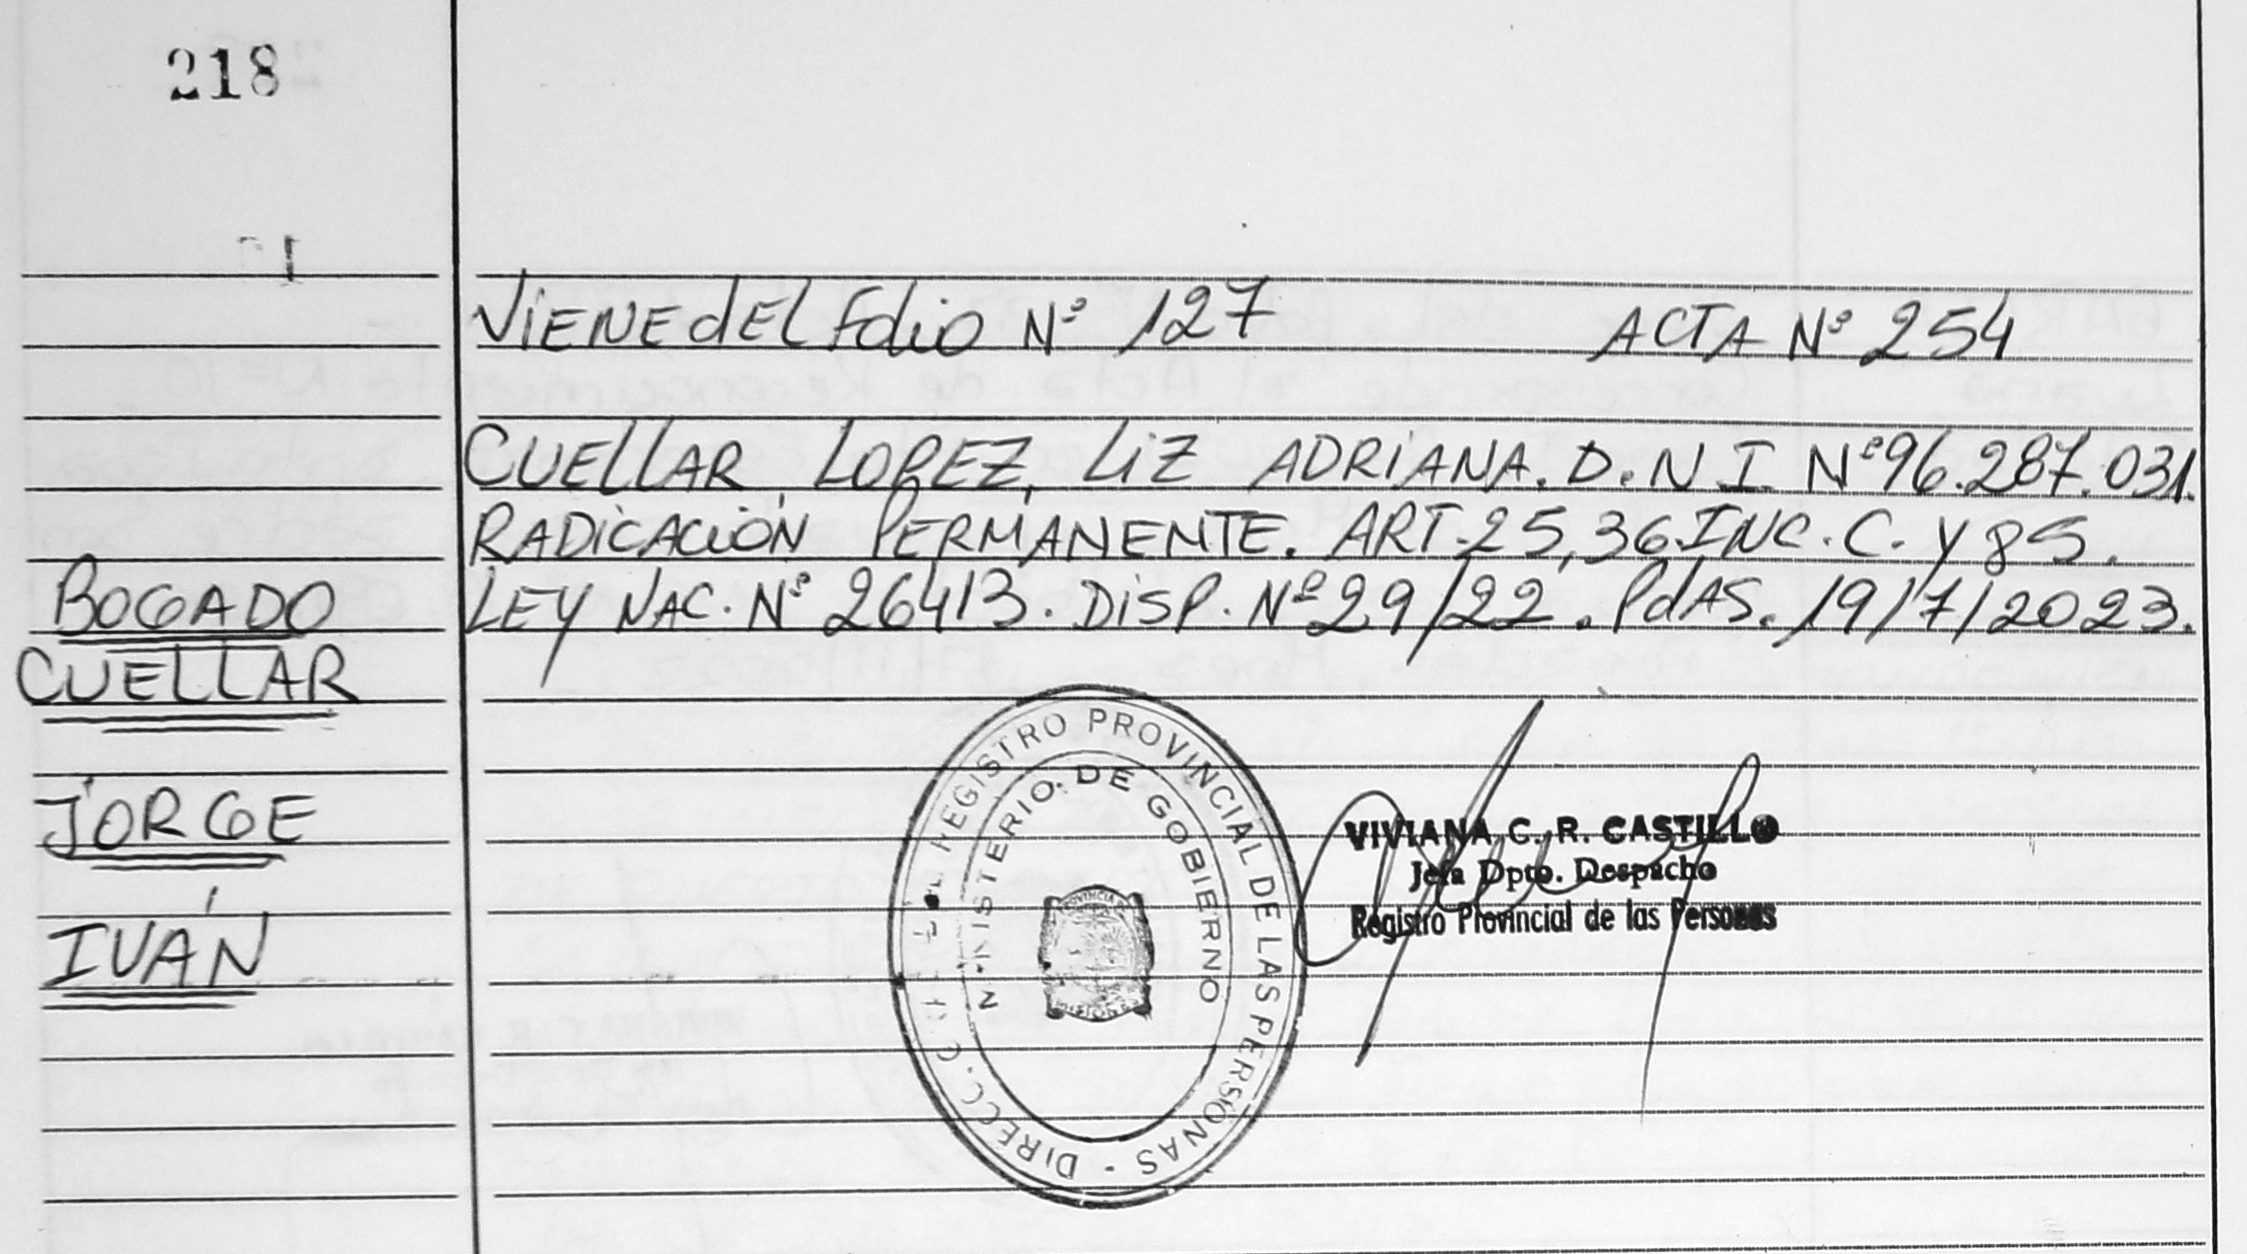 218
VIENE dEL FOLIO Nº 127 ACTA Nº 254
CUELLAR LOPEZ, LIZ ADRIANA. D.N.I. Nº 96.287.031.
RADICACIÓN PERMANENTE. ART. 25, 36 INC. C. Y 85.
LEY NAC. Nº 26413. DISP. Nº 29/22. PdAS. 19/7/2023.
BOGADO
CUELLAR
JORGE
IVÁN
REGISTRO PROVINCIAL DE LAS PERSONAS - DIRECC.
MINISTERIO DE GOBIERNO
VIVIANA C. R. CASTILLO
Jefa Dpto. Despacho
Registro Provincial de las Personas